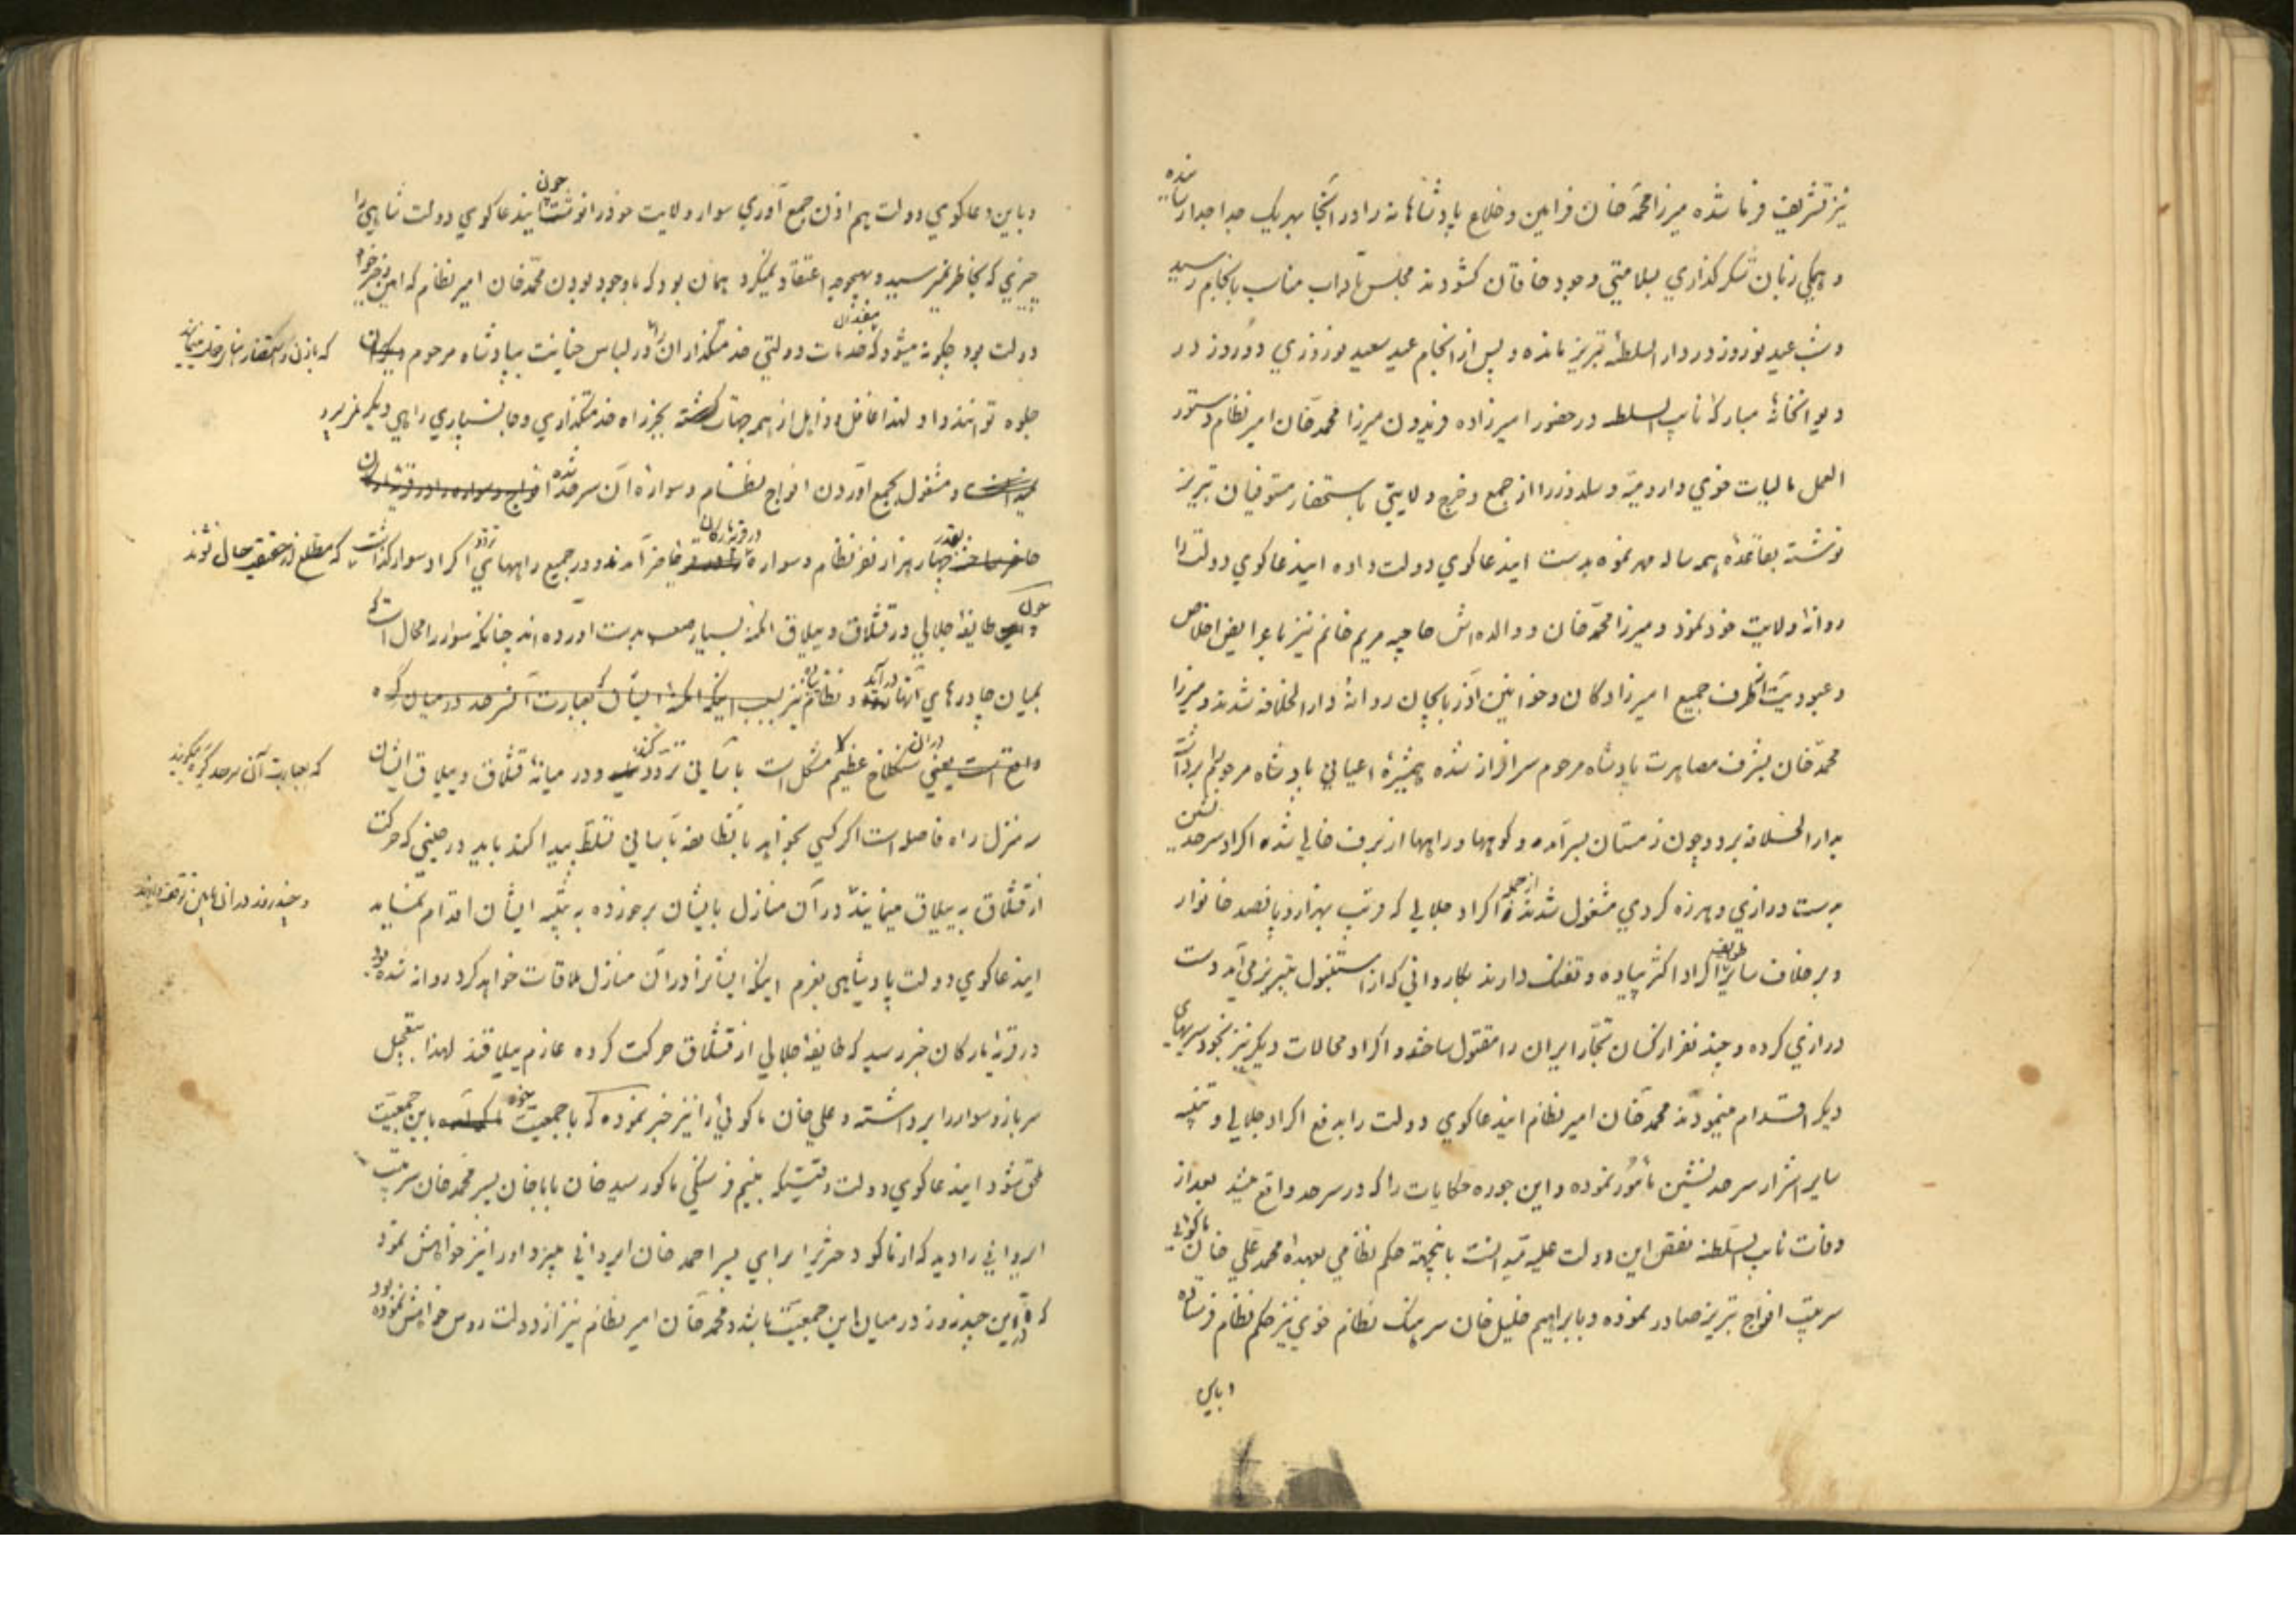 نیز تشریف فرما شده میرزا محمد خان فرامین و خلاع پادشاهانه را در آنجا بهریک جدا جدا رسانیده
و همکی زبان شکر کذاری بسلامتی وجود خاقان کشودند مجلس بآداب مناسب بانجام رسید
و شب عید نوروز در دار السلطنهٔ تبریز مانده و پس از انجام عید سعید نوروزی دو روز در
دیوانخانهٔ مبارکهٔ نایب السلطنه در حضور امیرزاده فریدون میرزا محمد خان امیر نظام دستور
العمل مالیات خوی و ارومیه و سلدوز را از جمع و خرج ولایتی باستحضار مستوفیان تبریز
نوشته بقاعدهٔ همه ساله مهر نموده بدست ایندعاکوی دولت داده ایندعاکوی دولت را
روانهٔ ولایت خود نمود و میرزا محمد خان و والده اش حاجیه مریم خانم نیز با عرایض اخلاص
و عبودیت از طرف جمیع امیرزادکان و خوانین آذربایجان روانهٔ دار الخلافه شدند و میرزا
محمد خان بشرف مصاهرت پادشاه مرحوم سرافراز شده همشیرهٔ اعیانی پادشاه مرحوم را برداشت
بدار الخلافه برد و چون زمستان بسر آمد و کوهها و راهها از برف خالی شد اکراد سرحد نشین
بدست درازی و هرزه کردی مشغول شدند از جمله اکراد جلالی که قریب بهزار و پانصد خانوار
و بر خلاف سایر طوایف اکراد اکثر پیاده و تفنک دارند بکاروانی که از استنبول بتبریز می آمد دست
درازی کرده و چند نفر از کسان تجار ایران را مقتول ساخته و اکراد محالات دیکر نیز بخود سریهای
دیکر اقدام مینمودند محمد خان امیر نظام ایندعاکوی دولت را بدفع اکراد جلالی و تنبیه
سایر اشرار سرحد نشین مأمور نموده و این جوره حکایات را که در سرحد واقع میشد بعد از
وفات نایب السلطنه نقص این دولت علیه میدانست باینجهة حکم نظامی بعهدهٔ محمد علی خان ماکوئی
سرتیپ افواج تبریز صادر نموده و بابراهیم خلیل خان سرهنک نظام خوی نیز حکم نظام فرستاده
و باین
و باین دعاکوی دولت هم اذن جمع آوری سوار ولایت خود را نوشت چون ایندعاکوی دولت شاهی را
چیزی که بخاطر نمیرسید و بهیچوجه اعتقاد نمیکرد همان بود که باوجود بودن محمد خان امیر نظام که امین و خیرخواه
دولت بود چکونه میشود که مفسدان خدمات دولتی خدمتکذاران را در لباس خیانت بپادشاه مرحوم
جلوه توانند داد لهذا غافل و ذاهل از همه جهات کشته بجز راه خدمتکذاری و جانسپاری راهی دیکر
و مشغول بجمع آوردن افواج نظام و سواره آن سرحد شده
بقدر چهار هزار نفر نظام و سواره در قریهٔ یارکان حاضر آمدند و در جمیع راههای تردد اکراد سوار کذاشت که مطلع از حقیقت حال شوند
چون طایفهٔ جلالی در قشلاق و ییلاق امکنهٔ بسیار صعب بدست آورده اند چنانکه سوار را محال است که
بمیان چادرهای آنها در آید و نظام پیاده نیز بسبب اینکه امکنهٔ ایشان که بعبارت آنسرحد در میان کره
واقع است یعنی سنکلاخ عظیم مشکل است بآسانی تردد کند و در میانهٔ قشلاق و ییلاق ایشان
که بعبارت آن سرحد کره میکویند
سه منزل راه فاصله است اکر کسی بخواهد با نظایفه بآسانی تسلط پیدا کند باید در حینی که حرکت
از قشلاق به ییلاق مینمایند در آن منازل بایشان برخورده به تنبیه ایشان اقدام نماید
و چند روز در آن مابین توقف دارند
ایندعاکوی دولت پادشاهی بعزم اینکه ایشانرا در آن منازل ملاقات خواهد کرد روانه شده بود
در قریهٔ یارکان خبر رسید که طایفهٔ جلالی از قشلاق حرکت کرده عازم ییلاقند لهذا بتعجیل
سرباز و سوار را برداشته و علی خان ماکوئی را نیز خبر نموده که با جمعیت خود باین جمعیت
ملحق شود ایندعاکوی دولت وقتیکه بنیم فرسنکی ماکو رسید خان باباخان پسر محمد خان سرتیپ
ایروانی را دید که از ماکو دختر برای پسر احمد خان ایروانی میبرد او را نیز خواهش نمود
که در این چند روز در میان این جمعیت باشد و محمد خان امیر نظام نیز از دولت روس خواهش نموده بود